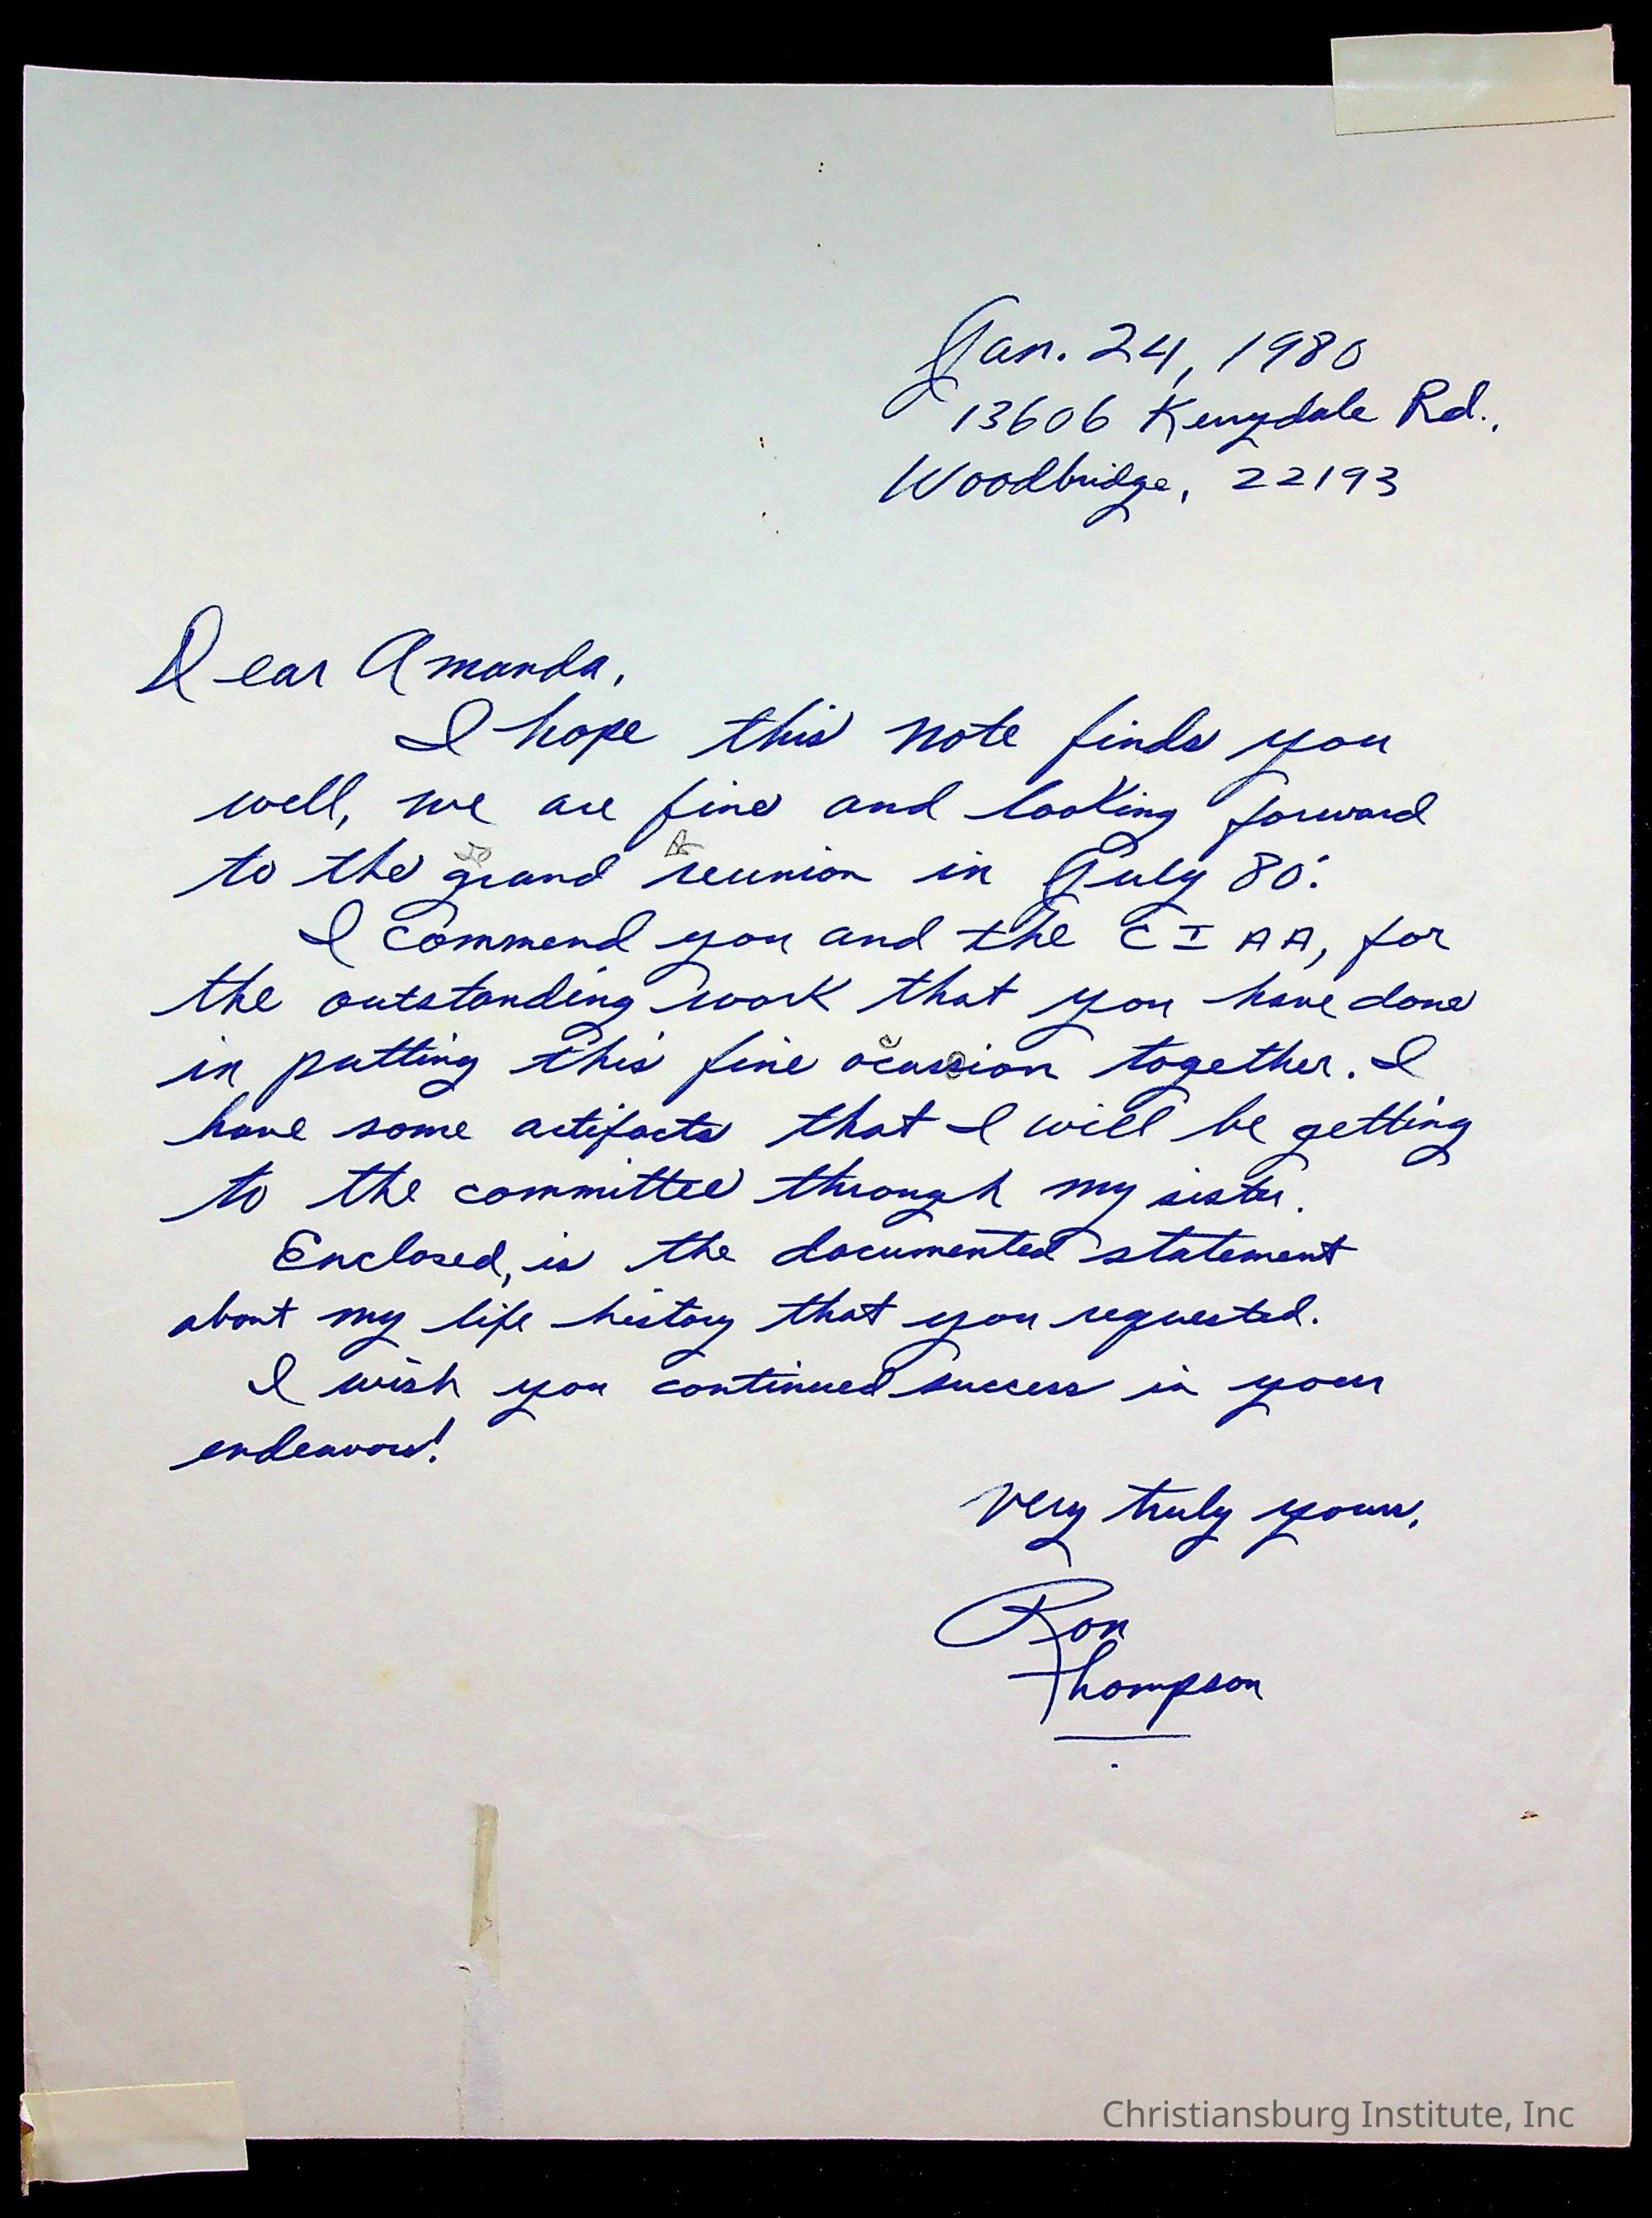 Jan. 24, 1980
13606 Kerrydale Rd.,
Woodbridge, 22193
Dear Amanda,
I hope this note finds you
well, we are fine and looking forward
to the grand reunion in July 80'.
I commend you and the CIAA, for
the outstanding work that you have done
in putting this fine ocassion together. I
have some artifacts that I will be getting
to the committee through my sister.
Enclosed, is the documented statement
about my life history that you requested.
I wish you continued success in your
endeavors!
Very truly yours,
Ron
Thompson
Christiansburg Institute, Inc